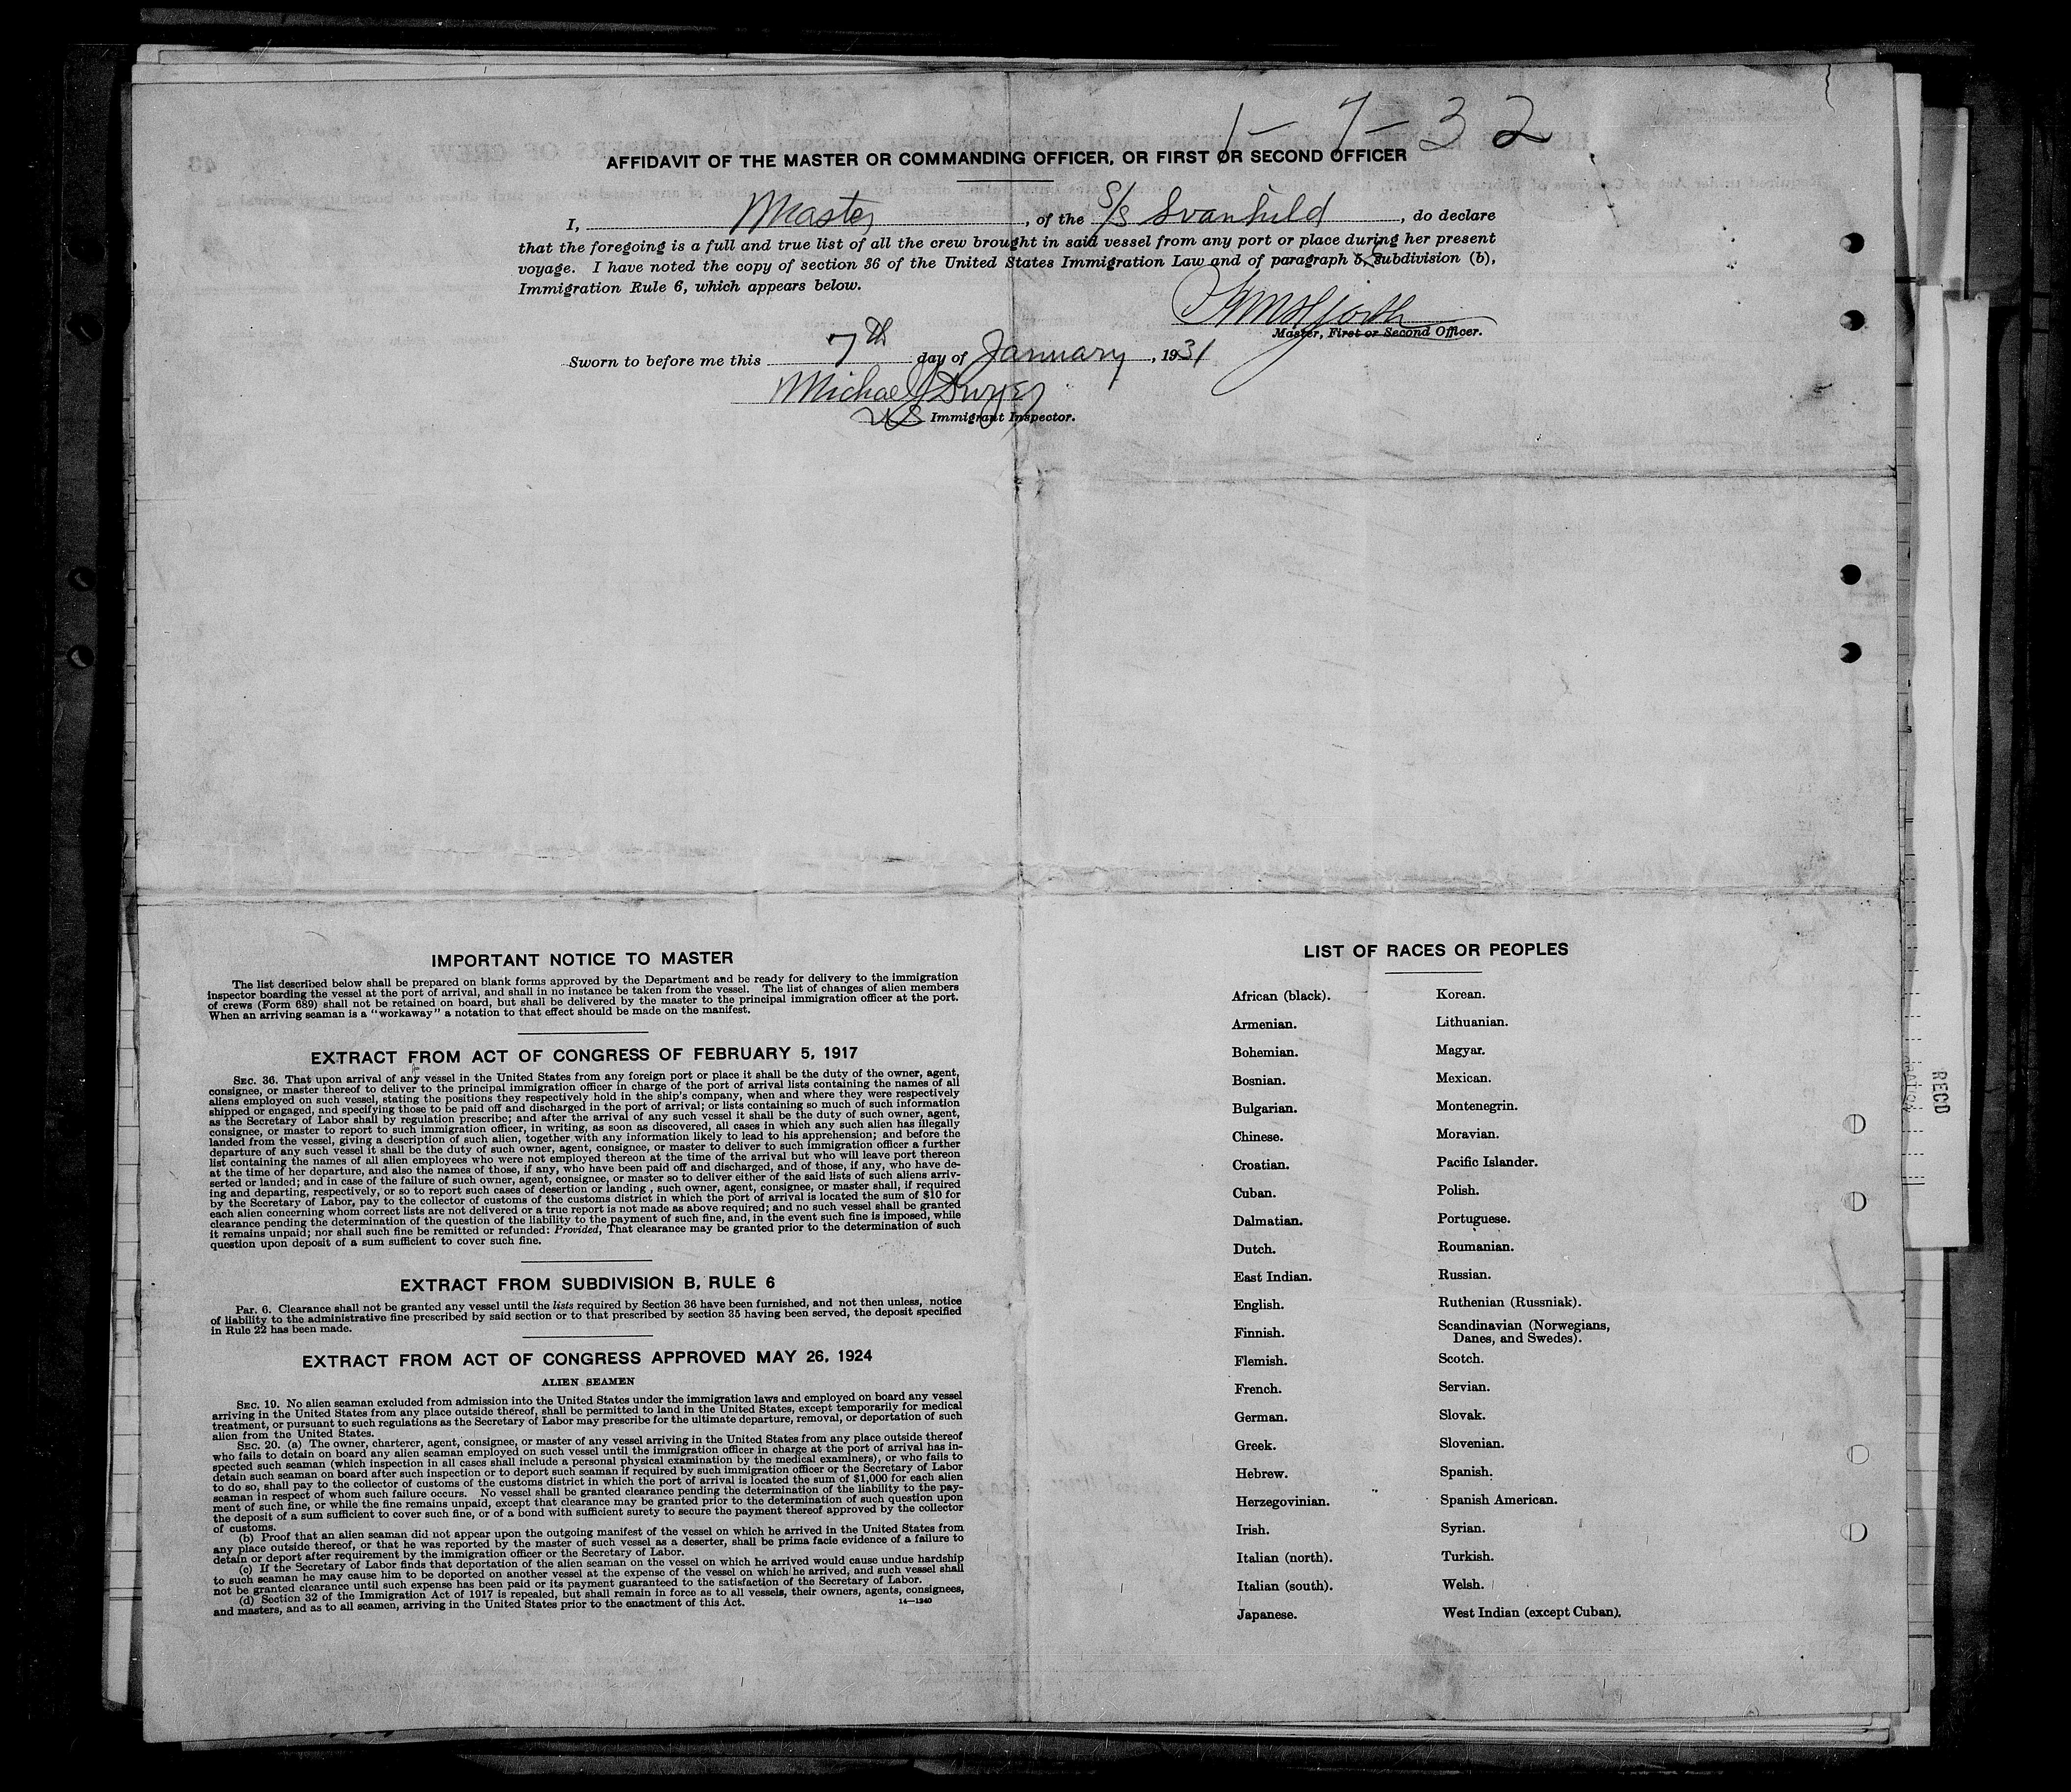 1-7-32
AFFIDAVIT OF THE MASTER OR COMMANDING OFFICER, OR FIRST OR SECOND OFFICER
I, Master, of the S/S Svanhild, do declare
that the foregoing is a full and true list of all the crew brought in said vessel from any port or place during her present
voyage. I have noted the copy of section 36 of the United States Immigration Law and of paragraph 5, subdivision (b),
Immigration Rule 6, which appears below.
Master, First or Second Officer.
Sworn to before me this 7th day of January, 1931
Michael J Dwyer
US Immigrant Inspector.
IMPORTANT NOTICE TO MASTER
The list described below shall be prepared on blank forms approved by the Department and be ready for delivery to the immigration
inspector boarding the vessel at the port of arrival, and shall in no instance be taken from the vessel. The list of changes of alien members
of crews (Form 689) shall not be retained on board, but shall be delivered by the master to the principal immigration officer at the port.
When an arriving seaman is a "workaway" a notation to that effect should be made on the manifest.
EXTRACT FROM ACT OF CONGRESS OF FEBRUARY 5, 1917
SEC. 36. That upon arrival of any vessel in the United States from any foreign port or place it shall be the duty of the owner, agent,
consignee, or master thereof to deliver to the principal immigration officer in charge of the port of arrival lists containing the names of all
aliens employed on such vessel, stating the positions they respectively hold in the ship's company, when and where they were respectively
shipped or engaged, and specifying those to be paid off and discharged in the port of arrival; or lists containing so much of such information
as the Secretary of Labor shall by regulation prescribe; and after the arrival of any such vessel it shall be the duty of such owner, agent,
consignee, or master to report to such immigration officer, in writing, as soon as discovered, all cases in which any such alien has illegally
landed from the vessel, giving a description of such alien, together with any information likely to lead to his apprehension; and before the
departure of any such vessel it shall be the duty of such owner, agent, consignee, or master to deliver to such immigration officer a further
list containing the names of all alien employees who were not employed thereon at the time of the arrival but who will leave port thereon
at the time of her departure, and also the names of those, if any, who have been paid off and discharged, and of those, if any, who have de-
serted or landed; and in case of the failure of such owner, agent, consignee, or master so to deliver either of the said lists of such aliens arriv-
ing and departing, respectively, or so to report such cases of desertion or landing , such owner, agent, consignee, or master shall, if required
by the Secretary of Labor, pay to the collector of customs of the customs district in which the port of arrival is located the sum of $10 for
each alien concerning whom correct lists are not delivered or a true report is not made as above required; and no such vessel shall be granted
clearance pending the determination of the question of the liability to the payment of such fine, and, in the event such fine is imposed, while
it remains unpaid; nor shall such fine be remitted or refunded: Provided, That clearance may be granted prior to the determination of such
question upon deposit of a sum sufficient to cover such fine.
EXTRACT FROM SUBDIVISION B, RULE 6
Par. 6. Clearance shall not be granted any vessel until the lists required by Section 36 have been furnished, and not then unless, notice
of liability to the administrative fine prescribed by said section or to that prescribed by section 35 having been served, the deposit specified
in Rule 22 has been made.
EXTRACT FROM ACT OF CONGRESS APPROVED MAY 26, 1924
ALIEN SEAMEN
SEC. 19. No alien seaman excluded from admission into the United States under the immigration laws and employed on board any vessel
arriving in the United States from any place outside thereof, shall be permitted to land in the United States, except temporarily for medical
treatment, or pursuant to such regulations as the Secretary of Labor may prescribe for the ultimate departure, removal, or deportation of such
alien from the United States.
SEC. 20. (a) The owner, charterer, agent, consignee, or master of any vessel arriving in the United States from any place outside thereof
who fails to detain on board any alien seaman employed on such vessel until the immigration officer in charge at the port of arrival has in-
spected such seaman (which inspection in all cases shall include a personal physical examination by the medical examiners), or who fails to
detain such seaman on board after such inspection or to deport such seaman if required by such immigration officer or the Secretary of Labor
to do so, shall pay to the collector of customs of the customs district in which the port of arrival is located the sum of $1,000 for each alien
seaman in respect of whom such failure occurs. No vessel shall be granted clearance pending the determination of the liability to the pay-
ment of such fine, or while the fine remains unpaid, except that clearance may be granted prior to the determination of such question upon
the deposit of a sum sufficient to cover such fine, or of a bond with sufficient surety to secure the payment thereof approved by the collector
of customs.
(b) Proof that an alien seaman did not appear upon the outgoing manifest of the vessel on which he arrived in the United States from
any place outside thereof, or that he was reported by the master of such vessel as a deserter, shall be prima facie evidence of a failure to
detain or deport after requirement by the immigration officer or the Secretary of Labor.
(c) If the Secretary of Labor finds that deportation of the alien seaman on the vessel on which he arrived would cause undue hardship
to such seaman he may cause him to be deported on another vessel at the expense of the vessel on which he arrived, and such vessel shall
not be granted clearance until such expense has been paid or its payment guaranteed to the satisfaction of the Secretary of Labor.
(d) Section 32 of the Immigration Act of 1917 is repealed, but shall remain in force as to all vessels, their owners, agents, consignees,
and masters, and as to all seamen, arriving in the United States prior to the enactment of this Act.
14—1240
LIST OF RACES OR PEOPLES
African (black).
Armenian.
Bohemian.
Bosnian.
Bulgarian.
Chinese.
Croatian.
Cuban.
Dalmatian.
Dutch.
East Indian.
English.
Finnish.
Flemish.
French.
German.
Greek.
Hebrew.
Herzegovinian.
Irish.
Italian (north).
Italian (south).
Japanese.
Korean.
Lithuanian.
Magyar.
Mexican.
Montenegrin.
Moravian.
Pacific Islander.
Polish.
Portuguese.
Roumanian.
Russian.
Ruthenian (Russniak).
Scandinavian (Norwegians,
Danes, and Swedes).
Scotch.
Servian.
Slovak.
Slovenian.
Spanish.
Spanish American.
Syrian.
Turkish.
Welsh.
West Indian (except Cuban).
RECD